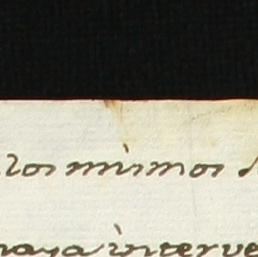 los mismos
haya interve